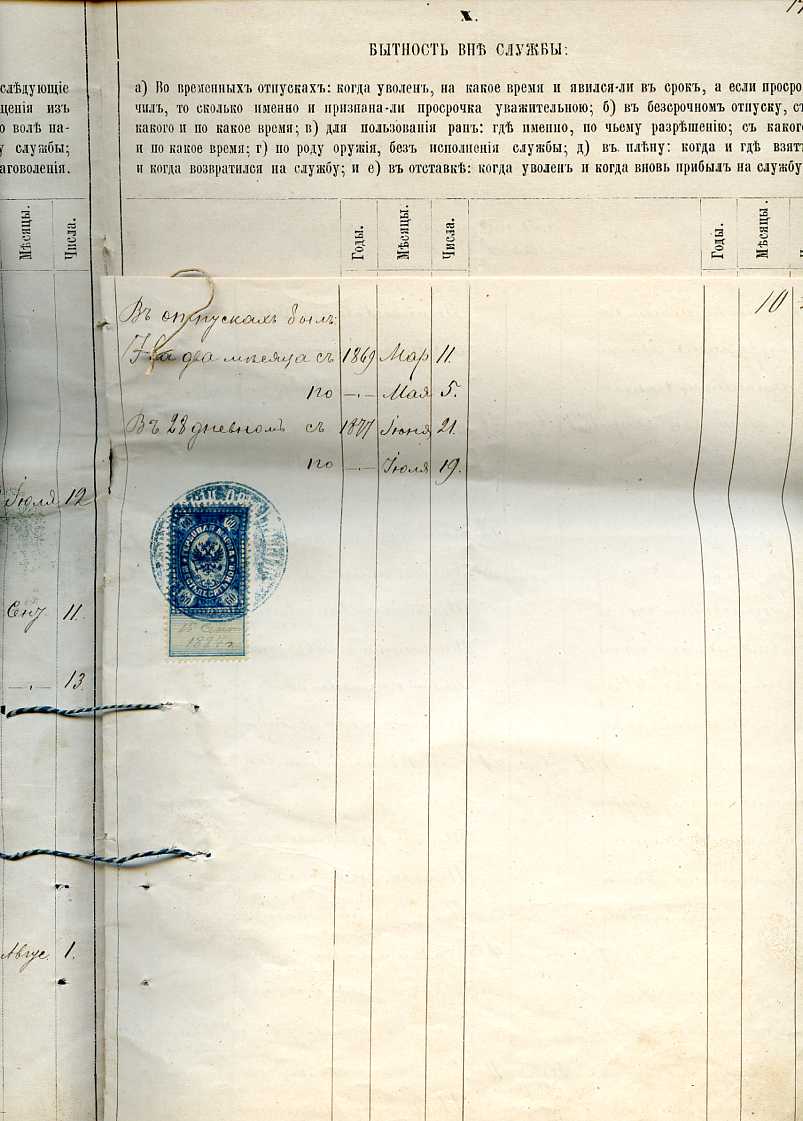 X.
БЫТНОСТЬ ВНѢ СЛУЖБЫ:
слѣдующіе
щенія изъ
о волѣ на-
у службы;
аговоленія.
а) Во временныхъ отпускахъ: когда уволенъ, на какое время и явился-ли въ срокъ, а если просро
чилъ, то сколько именно и признана-ли просрочка уважительною; б) въ безсрочномъ отпуску, съ
какого и по какое время; в) для пользованія ранъ: гдѣ именно, по чьему разрѣшенію; съ какого
и по какое время; г) по роду оружія, безъ исполненія службы; д) въ плѣну: когда и гдѣ взятъ
и когда возвратился на службу; и е) въ отставкѣ: когда уволенъ и когда вновь прибылъ на службу
Мѣсяцы. Числа.
Годы. Мѣсяцы. Числа.
Годы. Мѣсяцы.
Въ отпускахъ былъ:
10
На два мѣсяца съ 1869 Мар 11.
по —.— Мая 5.
Въ 28 дневномъ съ 1877 Іюня 21.
по —.— Іюля 19.
Іюля 12
60 60
ГЕРБОВАЯ МАРКА
ШЕСТЬДЕСЯТЪ КОП.
60 60
Сен 11.
—.— 13
Авгус. 1.